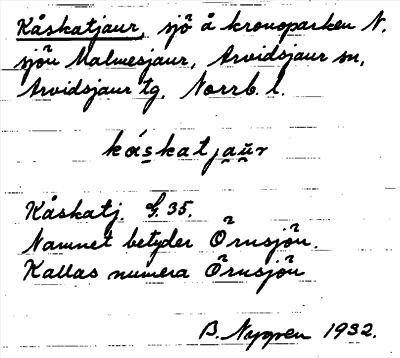 Kåskatjaur, sjö å kronoparken N.
sjön Malmesjaur, Arvidsjaur sn,
Arvidsjaur tg. Norrb. l.
kåskatjaur
Kåskatj. G. 35.
Namnet betyder Örnsjön.
Kallas numera Örnsjön
B. Nygren 1932.